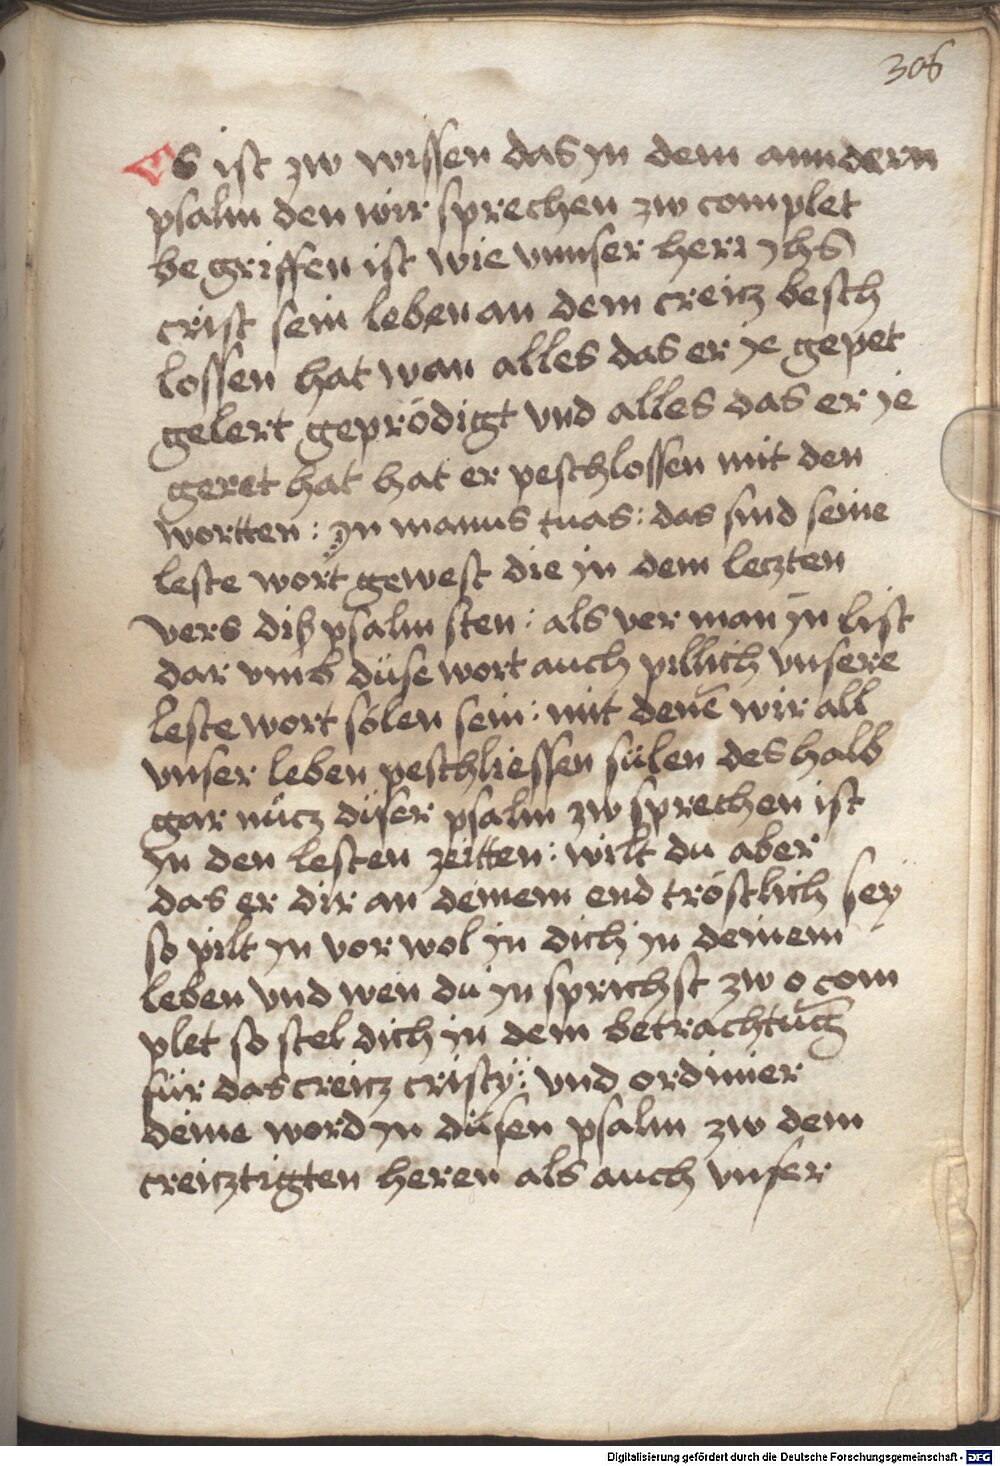 306
Es ist zw wissen das jn dem anndern
psalm den wir sprechen zw complet
be griffen ist wie vnnser herr jhs
crist sein leben an dem creicz besch
lossen hat wan alles das er je gepet
gelert geprödigt vnd alles das er je
geret hat hat er peschlossen mit den
wortten : jn manus tuas : das sind seine
leste wort gewest die jn dem leczten
vers diß psalm sten : als ver man jn list
dar vmb düse wort auch pillich vnsere
leste wort sölen sein : mit denē wir all
vnser leben peschliessen sülen des halb
gar nücz düser psalm zw sprechen ist
jn den lesten zeitten : wilt du aber
das er dir an deinem end tröstlich sey
so pilt jn vor wol jn dich jn deinem
leben vnd wen du jn sprichst zw o com
plet so stel dich jn dem betrachtūg
für das creicz cristÿ : vnd ordinier
deine word jn düsen psalm zw dem
creicztigten heren als auch vnser
Digitalisierung gefördert durch die Deutsche Forschungsgemeinschaft - DFG